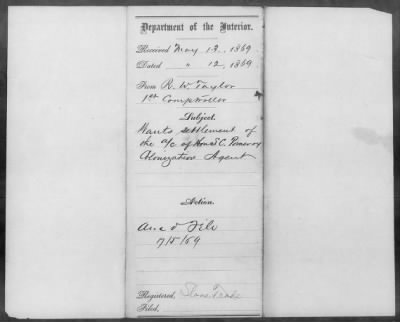 Department of the Interior.
Received May 13, 1869
Dated, " 12, 1869
From R. W. Taylor
1st Comptroller
Subject.
Wants settlement of
the a/c of Hon S. C. Pomeroy
Colonization Agent
Action.
File
Registered, Slave Trade
Filed,